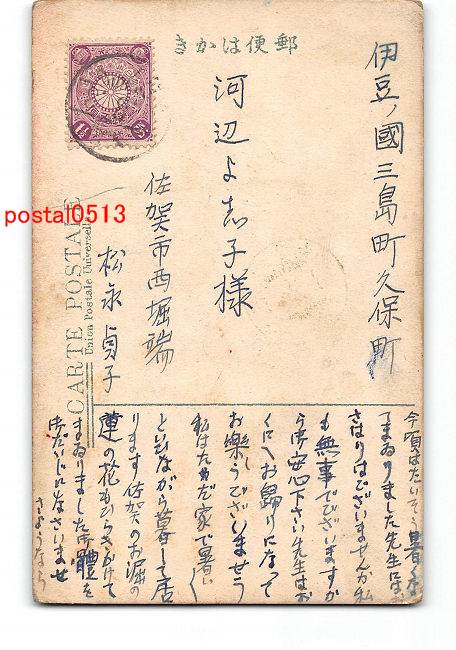 きかは便郵
伊豆ノ國三島町久保町
河辺よ志子様
佐賀市西堀端
松永貞子
CARTE POSTALE
Union Postale Universelle
postal0513
今頃はたいそう暑くな
てまゐりました先生にはお
さはりはございませんか私
も無事でございますか
ら御安心下さい先生はお
くにへお歸りになって
お樂しうございませう
私はたゞ家で暑い〳〵
と云ながら暮して居
ります佐賀のお堀の
蓮の花もひらきかけて
まゐりました御體を
御だいじになさいませ
さようなら